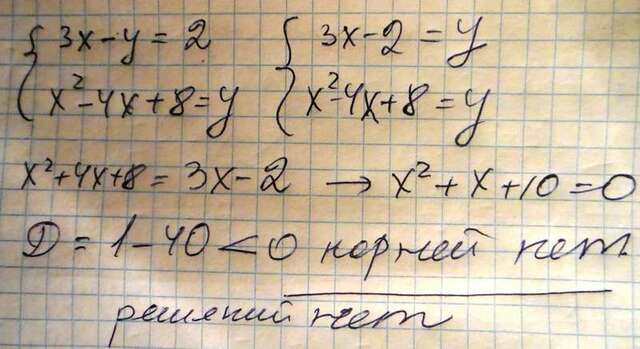 { 3x-y=2 { 3x-2=y
{ x²-4x+8=y { x²-4x+8=y
x²+4x+8=3x-2 → x²+x+10=0
D=1-40<0 корней нет
решений нет